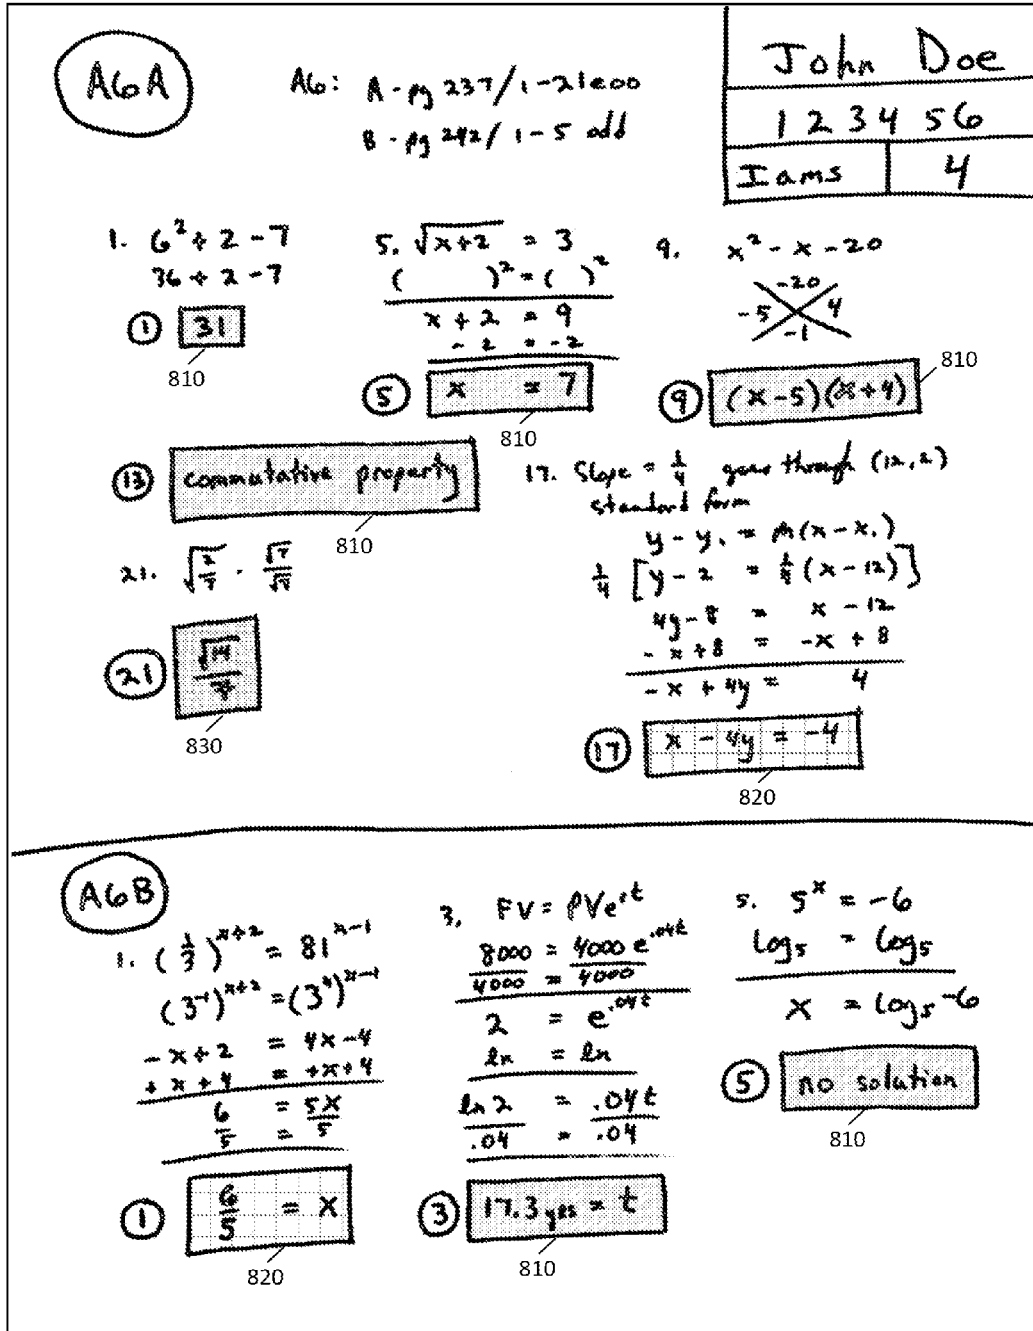 A6A
A6: A - pg 237/1-21eoo
B - pg 242/ 1-5 odd
John Doe
1 2 3 4 5 6
Iams 4
1. 6² + 2 - 7
36 + 2 - 7
① 31
810
5. √(x+2) = 3
( )² = ( )²
x + 2 = 9
- 2 = -2
⑤ x = 7
810
9. x² - x - 20
-20
-5 4
-1
⑨ (x-5)(x+4)
810
⑬ commutative property
810
17. Slope = 1/4 goes through (12,2)
standard form
y - y₁ = m(x - x₁)
1/4 [y - 2 = 1/4 (x-12)]
4y - 8 = x - 12
- x + 8 = -x + 8
- x + 4y = 4
⑰ x - 4y = -4
820
21. √(2/7) · √7/√7
㉑ √14/7
830
A6B
1. (1/3)^(x+2) = 81^(x-1)
(3^-1)^(x+2) = (3^4)^(x-1)
- x + 2 = 4x - 4
+ x + 4 = +x + 4
6/5 = 5x/5
① 6/5 = x
820
3, FV = PVe^rt
8000/4000 = 4000 e^.04t/4000
2 = e^.04t
ln = ln
ln 2/.04 = .04t/.04
③ 17.3 yrs = t
810
5. 5^x = -6
log₅ = log₅
x = log₅ -6
⑤ no solution
810